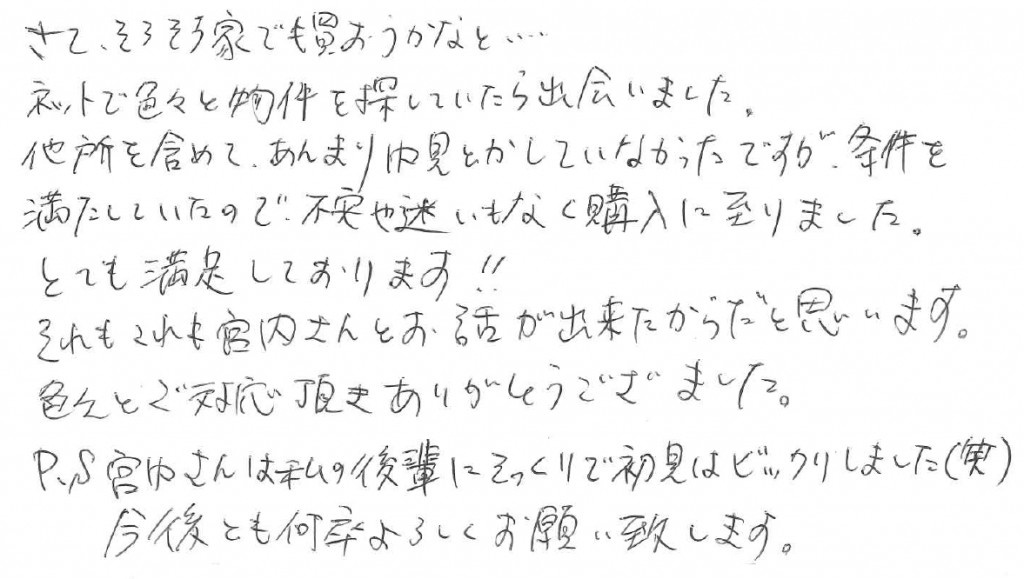 さて、そろそろ家でも買おうかなと‥‥
ネットで色々と物件を探していたら出会いました。
他所を含めて、あんまり内見とかしていなかったですが、条件を
満たしていたので、不安や迷いもなく購入に至りました。
とても満足しております!!
それもこれも宮内さんとお話が出来たからだと思います。
色々とご対応頂きありがとうございました。
P.S 宮内さんは私の後輩にそっくりで初見はビックリしました(笑)
今後とも何卒よろしくお願い致します。